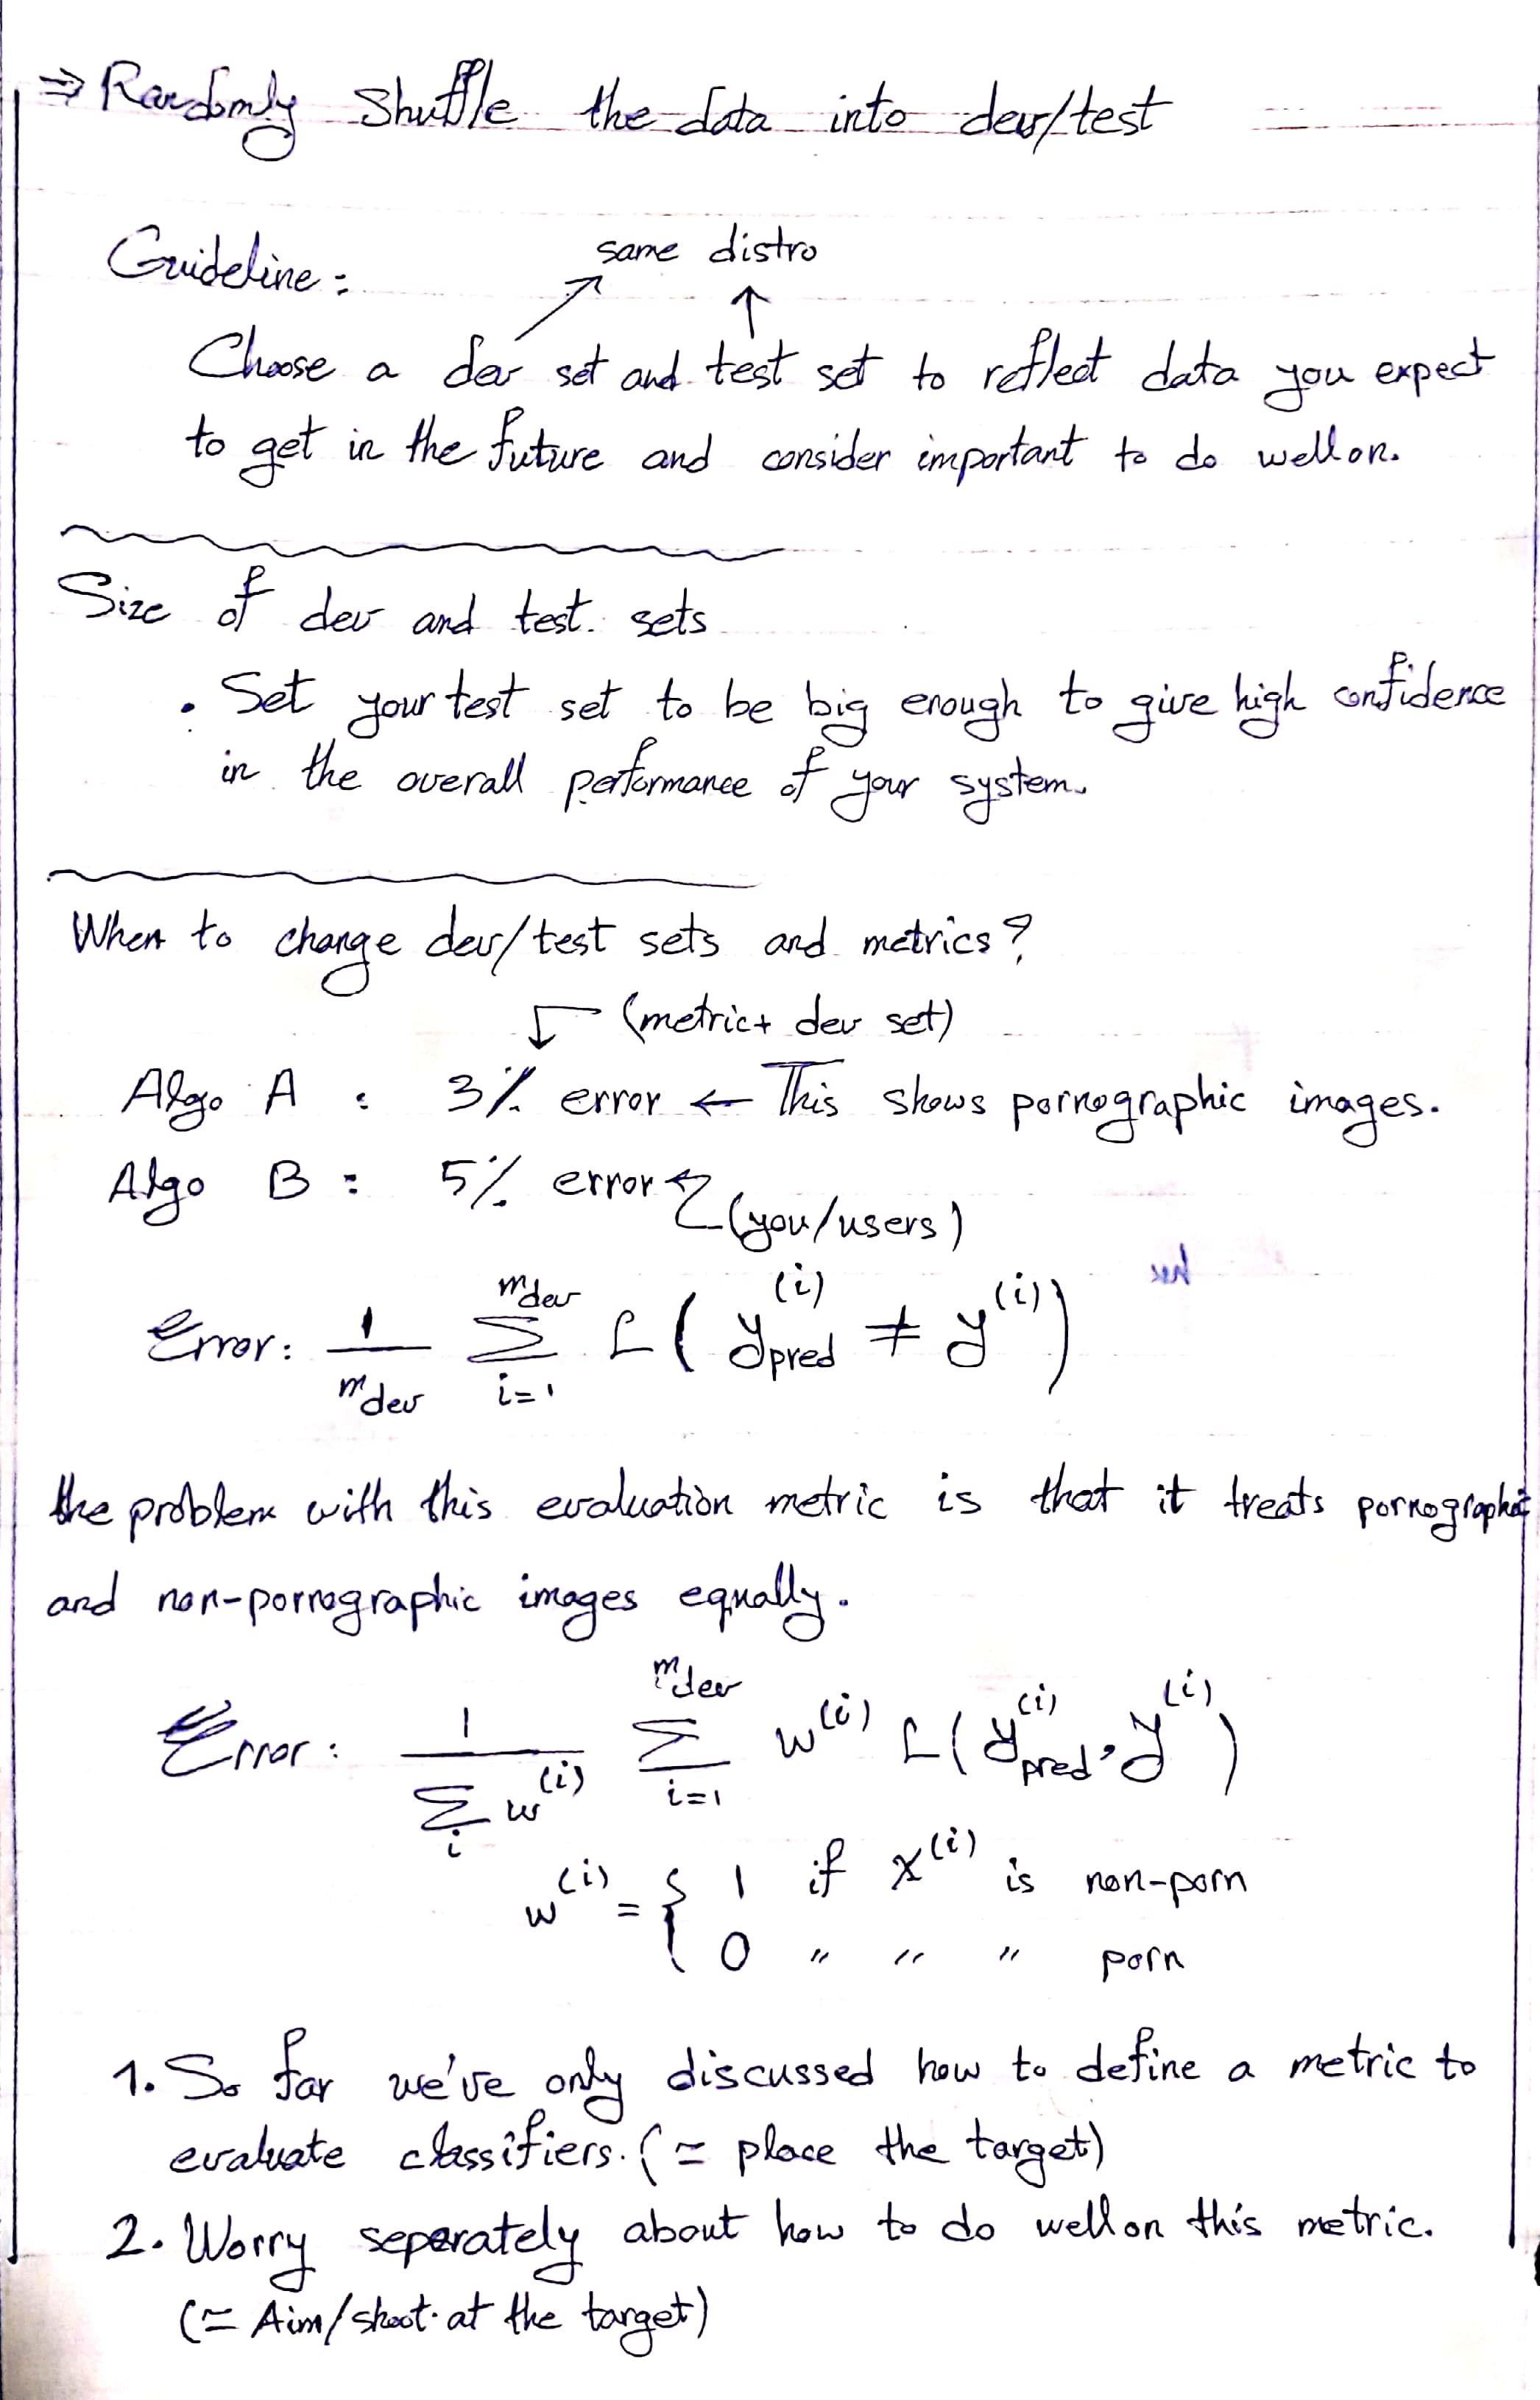 ⇒ Randomly shuffle the data into dev/test
Guideline:
same distro
Choose a dev set and test set to reflect data you expect
to get in the future and consider important to do well on.
Size of dev and test sets
• Set your test set to be big enough to give high confidence
in the overall performance of your system.
When to change dev/test sets and metrics?
(metric + dev set)
Algo A : 3% error ← This shows pornographic images.
Algo B : 5% error
(you/users)
Error: 1/m_dev ∑_{i=1}^{m_dev} L(y_pred^(i) ≠ y^(i))
the problem with this evaluation metric is that it treats pornographic
and non-pornographic images equally.
Error: 1/∑_i w^(i) ∑_{i=1}^{m_dev} w^(i) L(y_pred^(i), y^(i))
w^(i) = { 1 if x^(i) is non-porn
0 " " " porn
1. So far we've only discussed how to define a metric to
evaluate classifiers. (≃ place the target)
2. Worry seperately about how to do well on this metric.
(≃ Aim/shoot at the target)